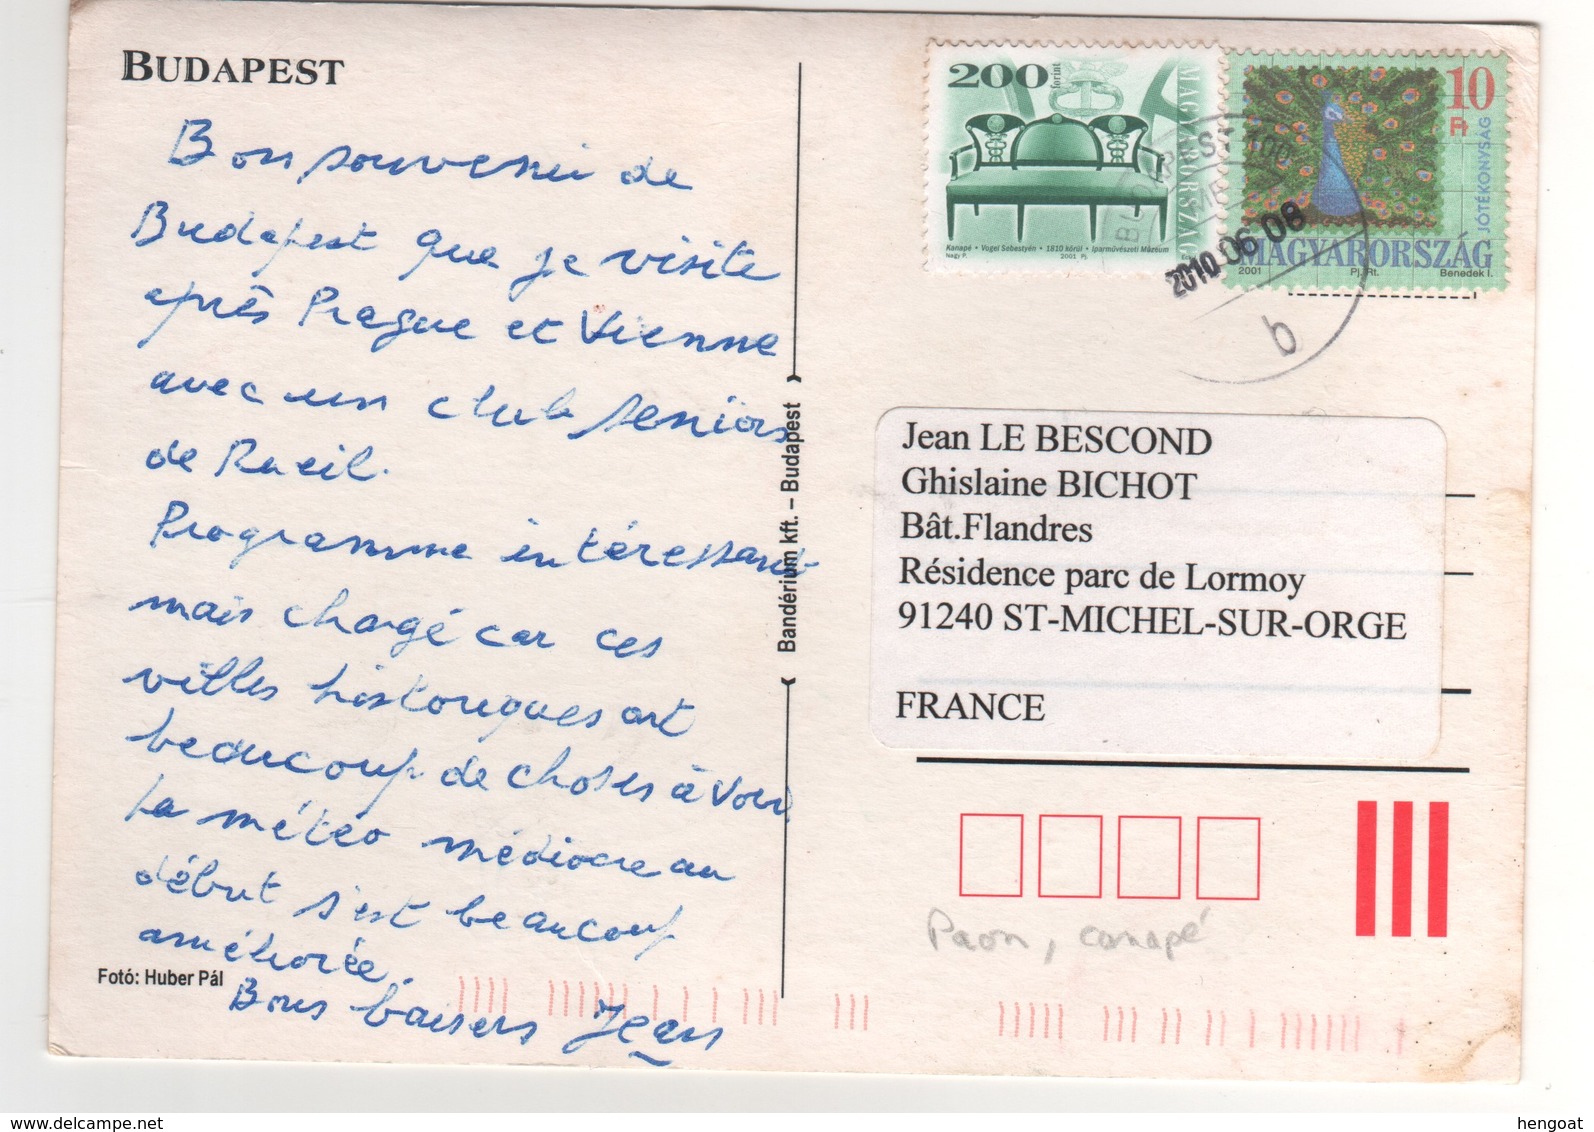 BUDAPEST
Bon souvenir de
Budapest que je visite
après Prague et Vienne
avec un club seniors
de Rueil.
Programme intéressant
mais chargé car ces
villes historiques ont
beaucoup de choses à voir
La météo médiocre au
début s'est beaucoup
améliorée.
Bons baisers Jean
Fotó: Huber Pál
Bandérium kft. – Budapest
200
forint
MAGYARORSZÁG
Kanapé • Vogel Sebestyén • 1810 körül • Iparművészeti Múzeum
Nagy P. 2001 Pj.
10
Ft
JÓTÉKONYSÁG
MAGYARORSZÁG
2001 Pj. Rt. Benedek I.
BUDAPEST
2010 06 08
b
Jean LE BESCOND
Ghislaine BICHOT
Bât.Flandres
Résidence parc de Lormoy
91240 ST-MICHEL-SUR-ORGE
FRANCE
Paon, canapé
hengoat